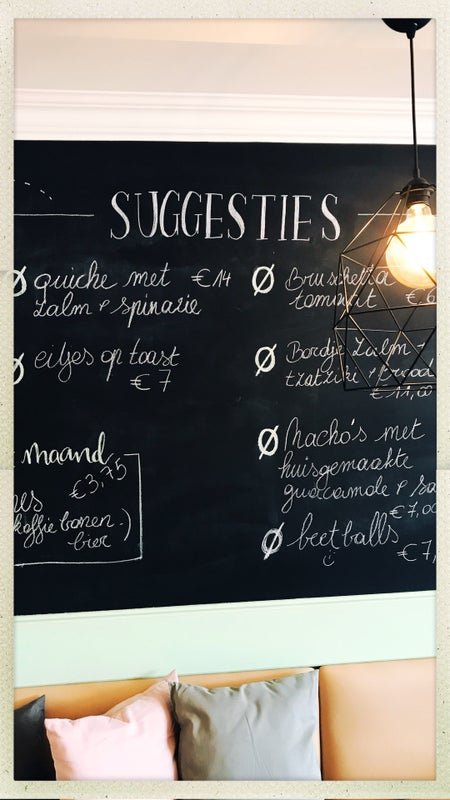 SUGGESTIES
Ø quiche met €14
zalm & spinazie
Ø eitjes op toast
€ 7
maand
€3,75
koffie bonen.)
bier
Ø Bruschetta
€ 6
Ø Bordje zalm -
tzatziki & brood
€ 11,00
Ø Nacho's met
huisgemaakte
guacamole & sa
€ 7,00
Ø beetballs
€ 7,